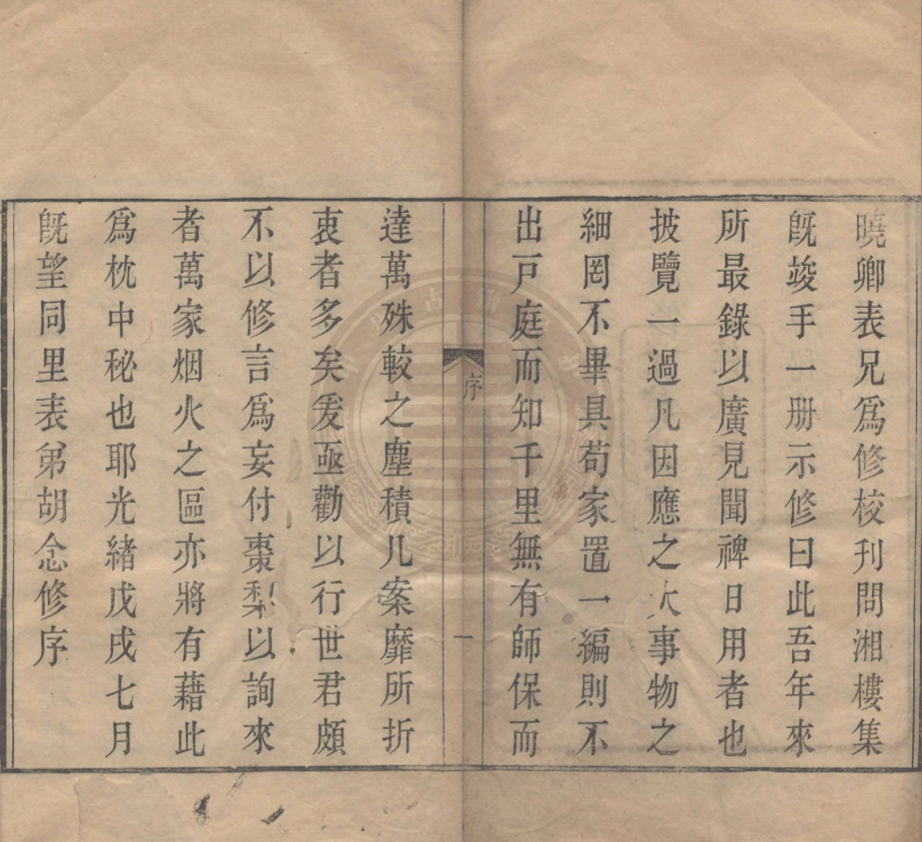 曉卿表兄爲修校刊問湘樓集
旣竣手一册示修曰此吾年來
所最錄以廣見聞裨日用者也
披覽一過凡因應之大事物之
細罔不畢具苟家置一編則不
出戸庭而知千里無有師保而
序
一
達萬殊較之塵積几案靡所折
衷者多矣爰亟勸以行世君頗
不以修言爲妄付棗棃以詢來
者萬家烟火之區亦將有藉此
爲枕中秘也耶光緒戊戌七月
旣望同里表弟胡念修序